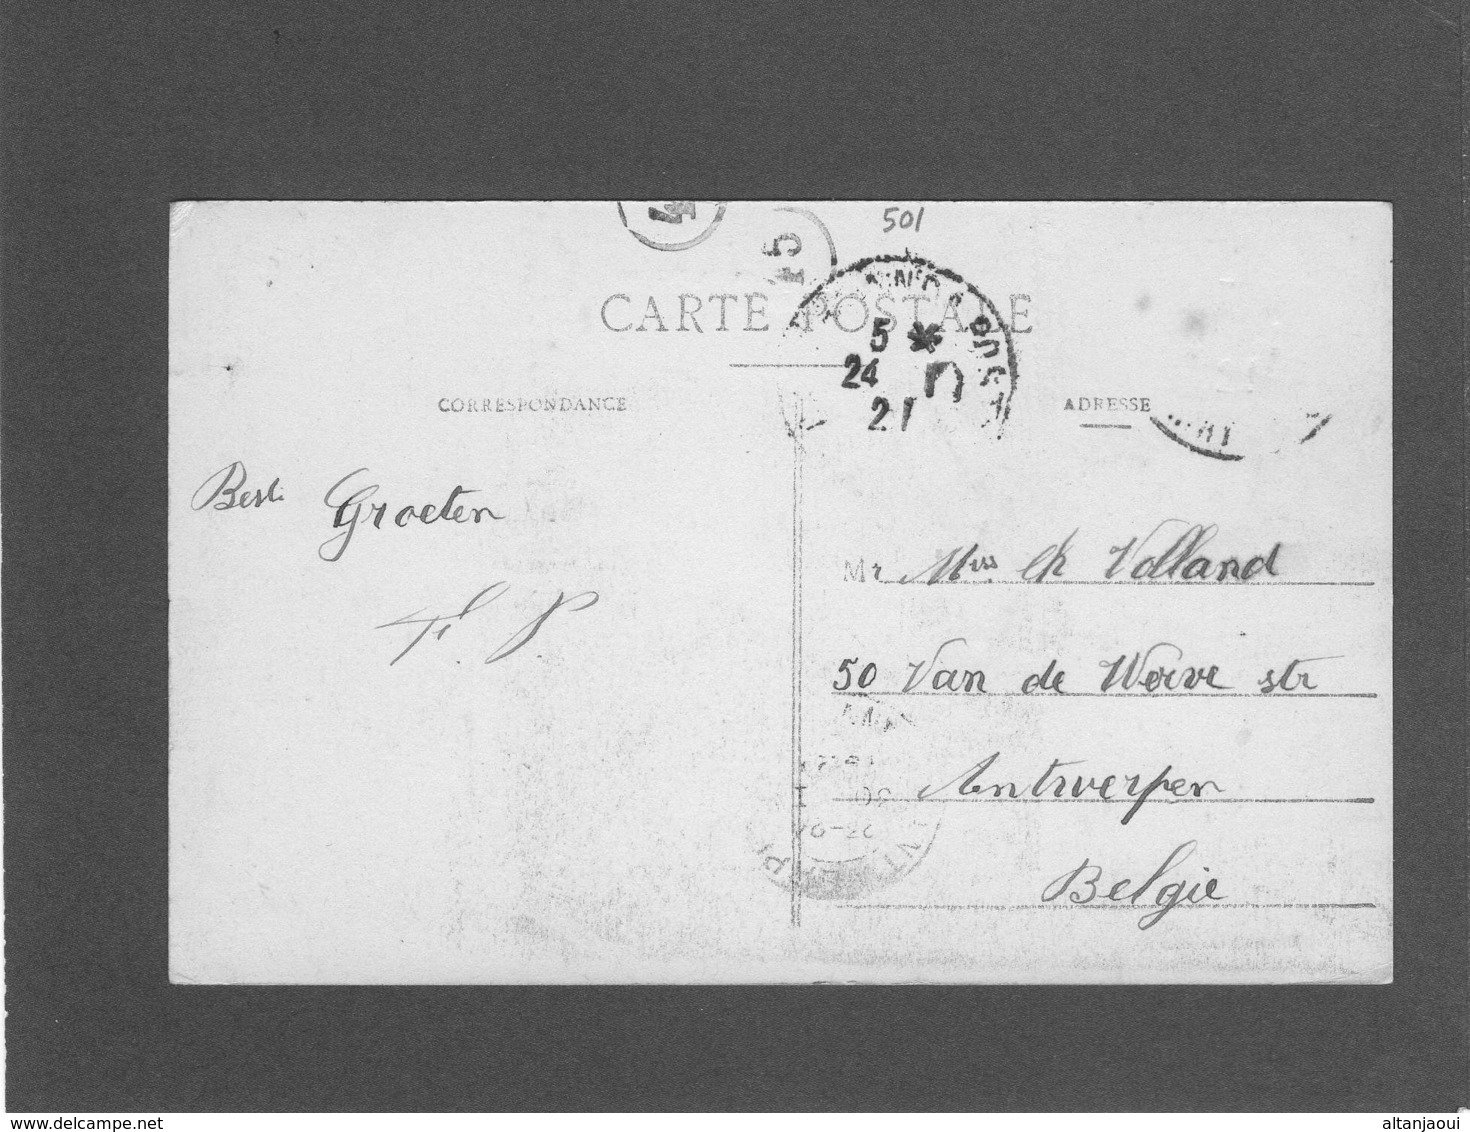 501
CARTE POSTALE
5 *
24
21
CORRESPONDANCE
ADRESSE
Groeten
F. P.
Mr Miss Ch Volland
50 Van de Werve str
Antwerpen
Belgie
delcampe.net
altanjaoui